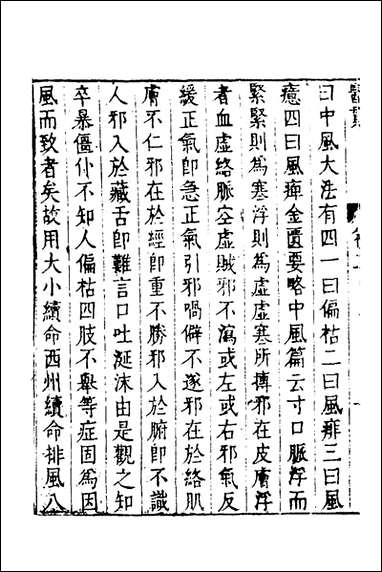 醫貫
卷二
曰中風大法有四一曰偏枯二曰風痱三曰風
癔四曰風痺金匱要略中風篇云寸口脈浮而
緊緊則為寒浮則為虛虛寒所搏邪在皮膚浮
者血虛絡脈空虛賊邪不瀉或左或右邪氣反
緩正氣即急正氣引邪喎僻不遂邪在於絡肌
膚不仁邪在於經即重不勝邪入於腑即不識
人邪入於藏舌即難言口吐涎沫由是觀之知
卒暴僵仆不知人偏枯四肢不舉等症固為因
風而致者矣故用大小續命西州續命排風八